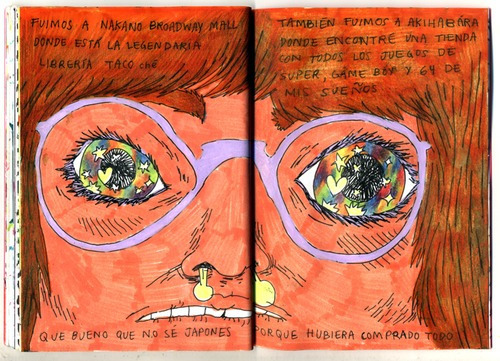 FUIMOS A NAKANO BROADWAY MALL
DONDE ESTÁ LA LEGENDARIA
LIBRERÍA TACO ché
TAMBIÉN FUIMOS A AKIHABARA
DONDE ENCONTRÉ UNA TIENDA
CON TODOS LOS JUEGOS DE
SUPER, GAME BOY Y 64 DE
MIS SUEÑOS
QUE BUENO QUE NO SÉ JAPONES PORQUE HUBIERA COMPRADO TODO